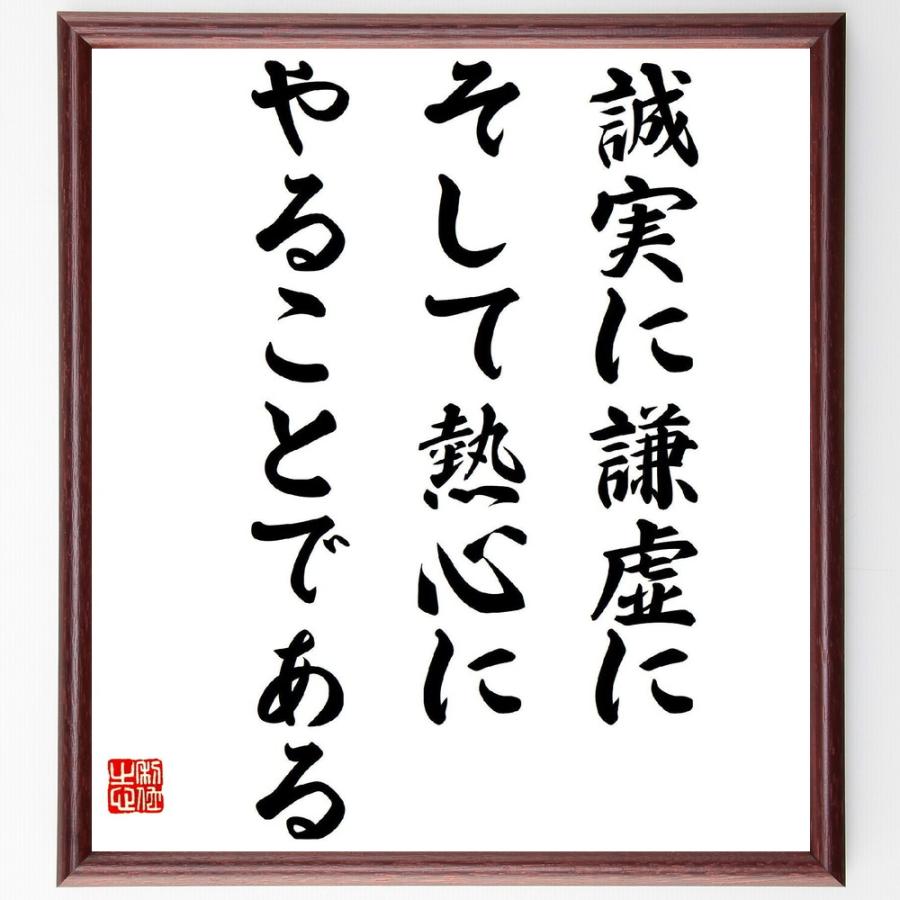 誠実に謙虚に
そして熱心に
やることである